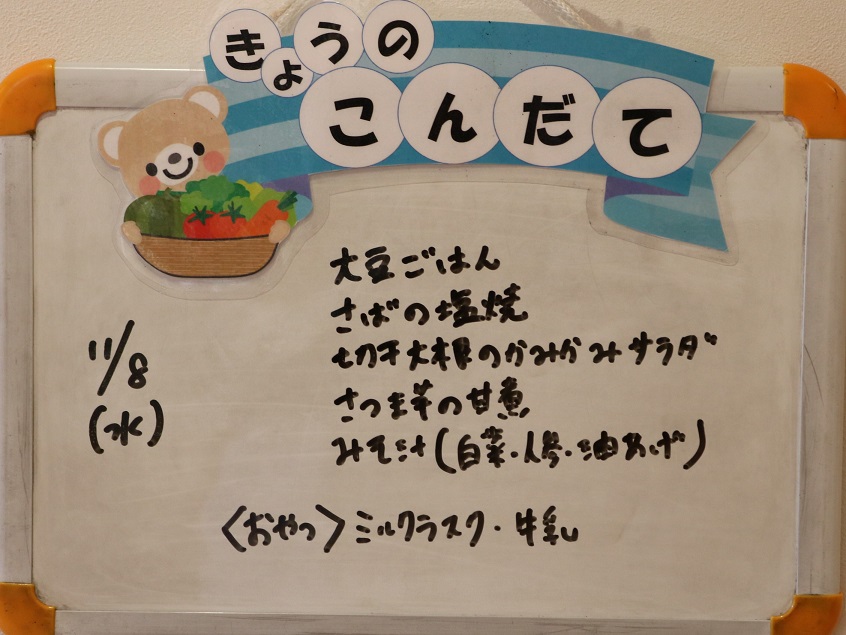 きょうの
こんだて
11/8
(水)
大豆ごはん
さばの塩焼
切干大根のかみかみサラダ
さつま芋の甘煮
みそ汁(白菜・人参・油あげ)
〈おやつ〉ミルクラスク・牛乳